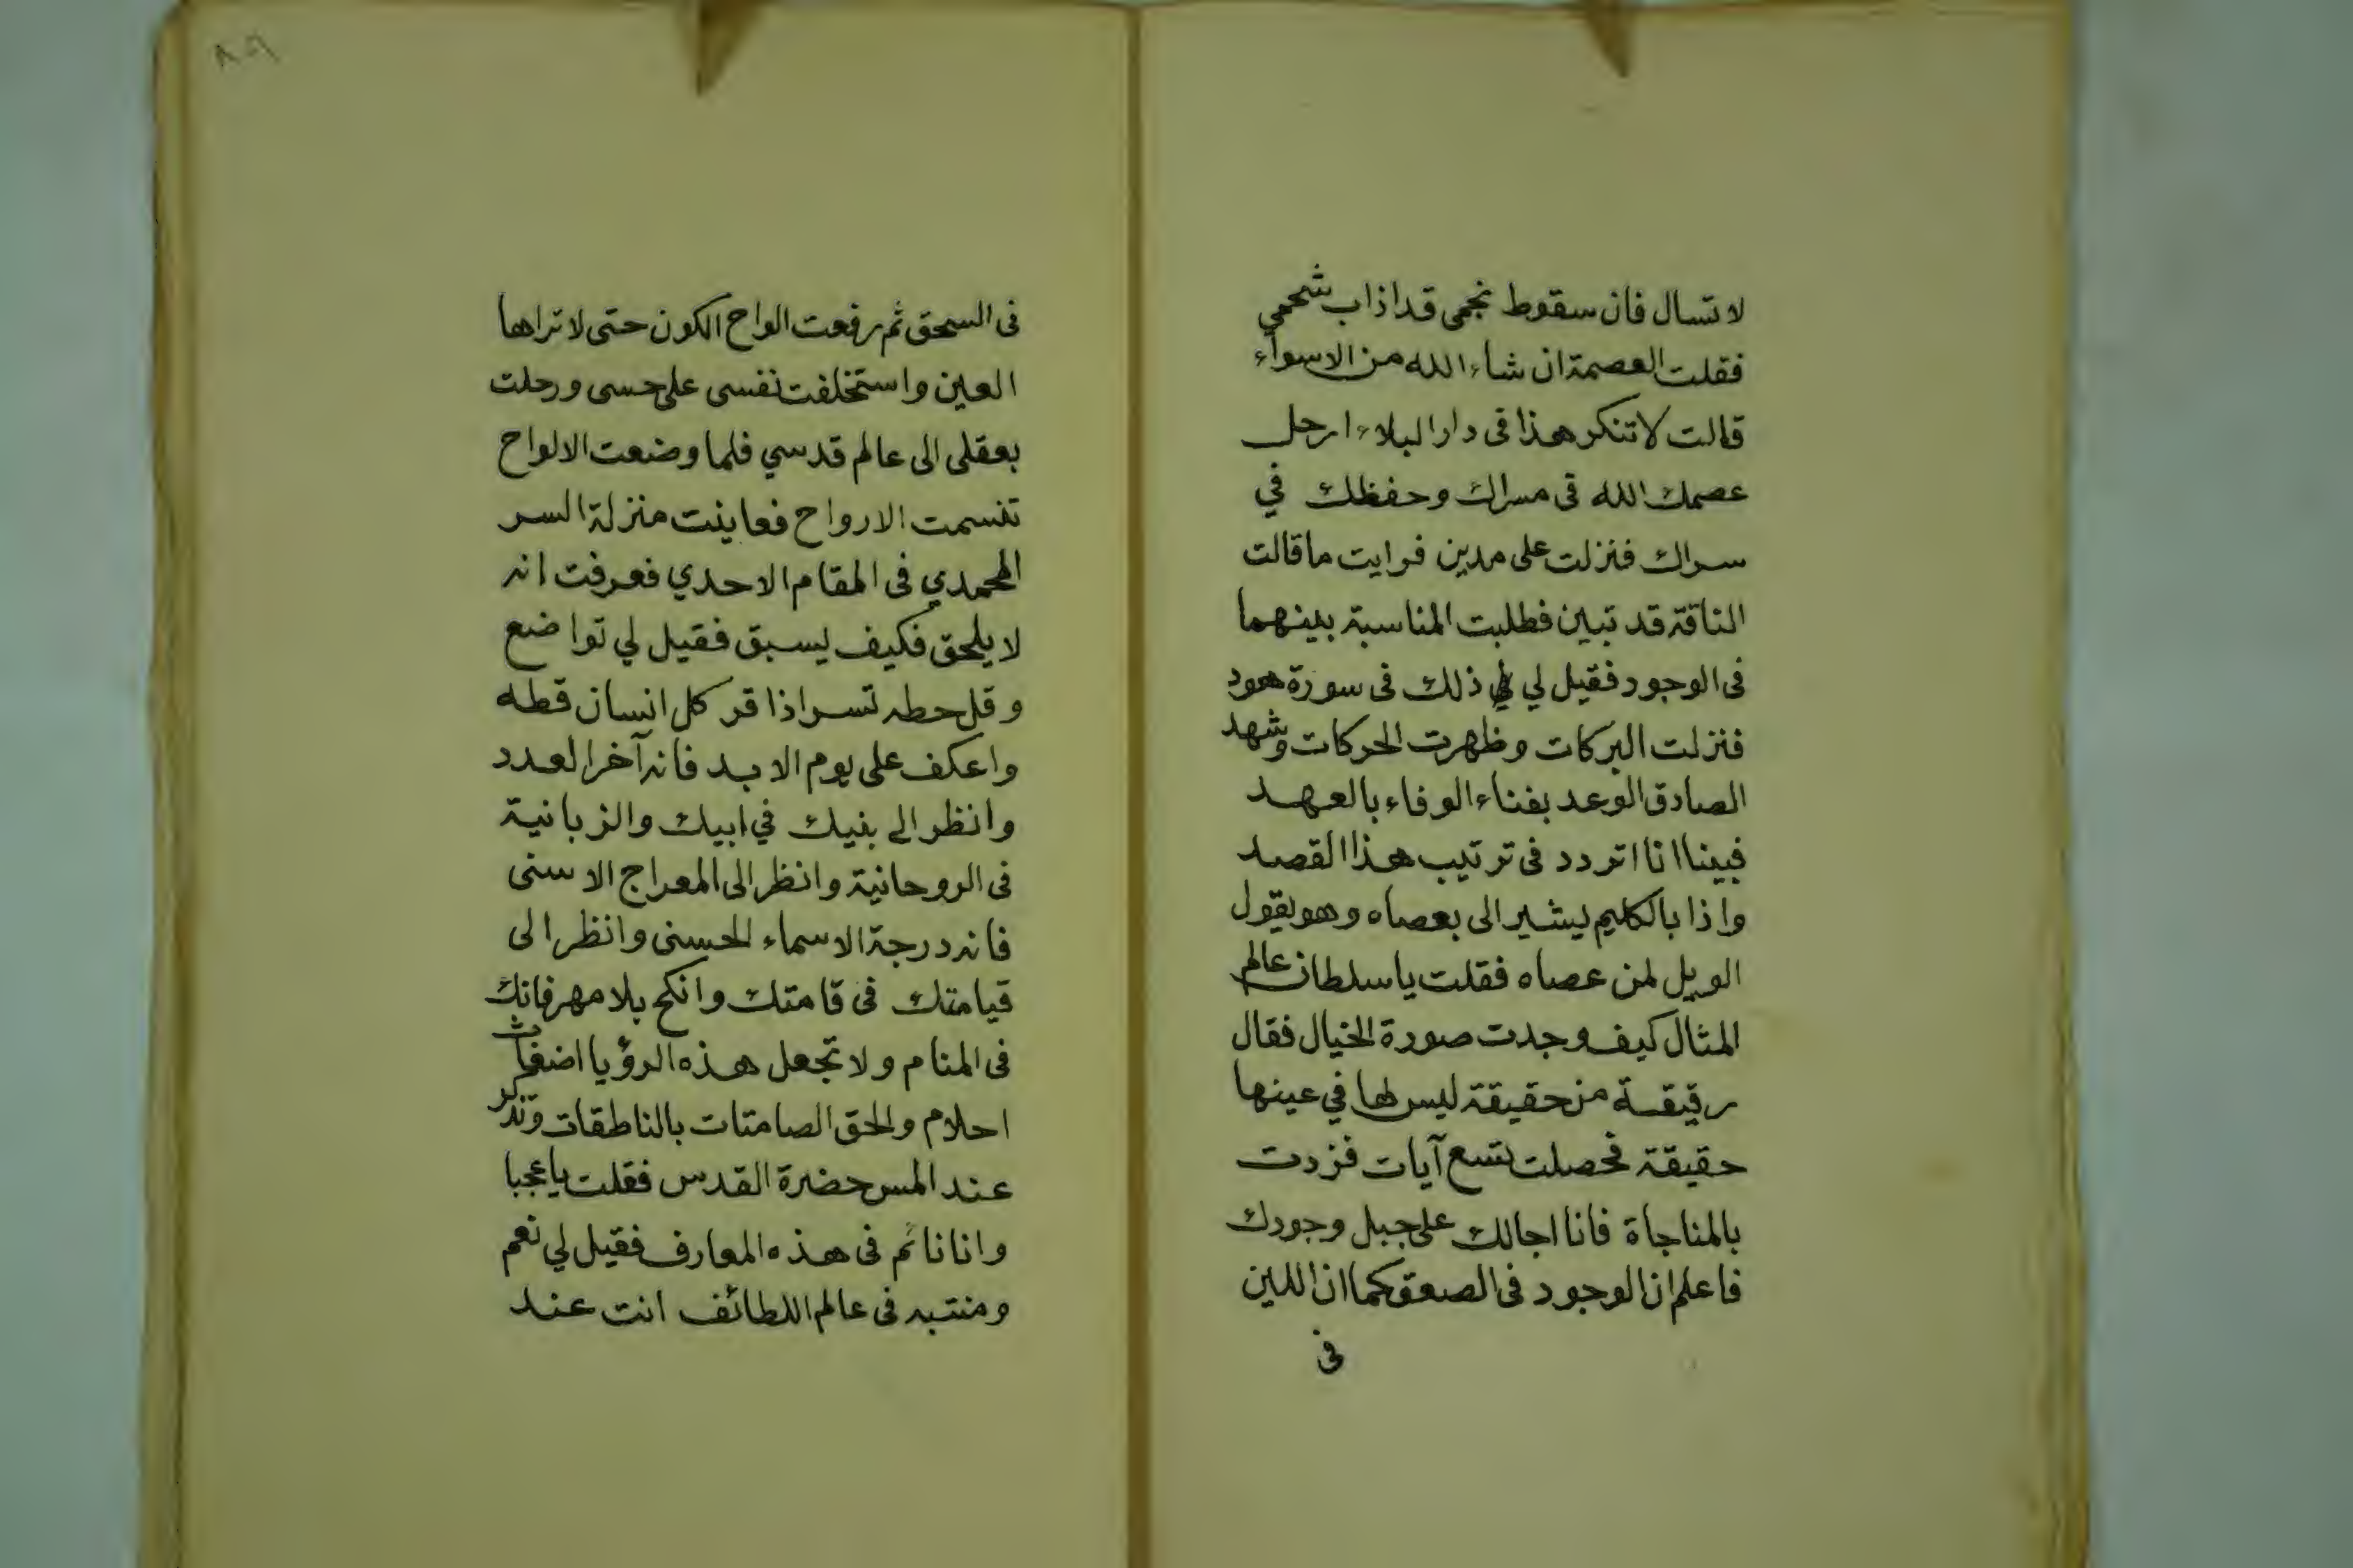 لا تسال فان سقوط نجمى قد اذاب شحمي
فقلت العصمة ان شاء الله من الاسواء
قالت لا تنكر هذا فى دار البلاء ارحل
عصمك الله فى مسراك وحفظك في
سراك فنزلت على مدين فرايت ما قالت
الناقة قد تبين فطلبت المناسبة بينهما
فى الوجود فقيل لي ذلك فى سورة هود
فنزلت البركات وظهرت الحركات وشهد
الصادق الوعد بفناء الوفاء بالعهد
فبينا انا اتردد فى ترتيب هذا القصد
واذا بالكليم يشير الى بعصاه وهو يقول
الويل لمن عصاه فقلت يا سلطان عالم
المثال كيف وجدت صورة الخيال فقال
رقيقة من حقيقة ليس لها في عينها
حقيقة فحصلت تسع آيات فزدت
بالمناجاة فانا اجالك على جبل وجودك
فاعلم ان الوجود فى الصعق كما ان اللين
فى
٨٥
فى السحق ثم رفعت الواح الكون حتى لا تراها
العين واستخلفت نفسى على حسى ورحلت
بعقلى الى عالم قدسي فلما وضعت الالواح
تنسمت الارواح فعاينت منزلة السر
المحمدي فى المقام الاحدي فعرفت انه
لا يلحق فكيف يسبق فقيل لي تواضع
وقل حطه تسر اذا قر كل انسان قطه
واعكف على يوم الابد فانه آخر العدد
وانظر الى بنيك في ابيك والزبانية
فى الروحانية وانظر الى المعراج الاسنى
فانه درجة الاسماء الحسنى وانظر الى
قيامتك فى قامتك وانكح بلا مهر فانك
فى المنام ولا تجعل هذه الرؤيا اضغاث
احلام والحق الصامتات بالناطقات وتذكر
عند المس حضرة القدس فقلت يا عجبا
وانا نائم فى هذه المعارف فقيل لي نعم
ومنتبه فى عالم اللطائف انت عند